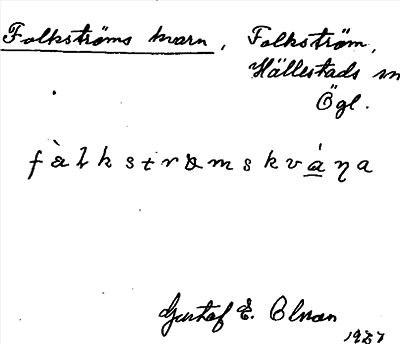 Folkströms kvarn, Folkström,
Hällestads sn
Ögl.
fàlkstrømskvá̲ŋa
Gustaf E. Olsson
1927